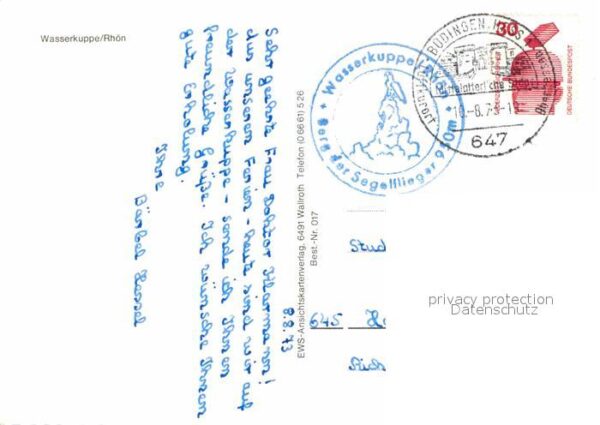 Wasserkuppe/Rhön
8.8.73
Sehr geehrte Frau Doktor Harmann!
Aus unseren Ferien - heute sind wir auf
der Wasserkuppe - sende ich Ihnen
freundliche Grüße. Ich wünsche Ihnen
gute Erholung.
Ihre
Bärbel
EWS-Ansichtskartenverlag, 6491 Wallroth Telefon (0 66 61) 5 26
Best.-Nr. 017
Wasserkuppe/Rhön
Berg der Segelflieger 950m
BÜDINGEN
Mittelalterliche
647
30
DEUTSCHE BUNDESPOST
Stud
645 Ha
privacy protection
Datenschutz